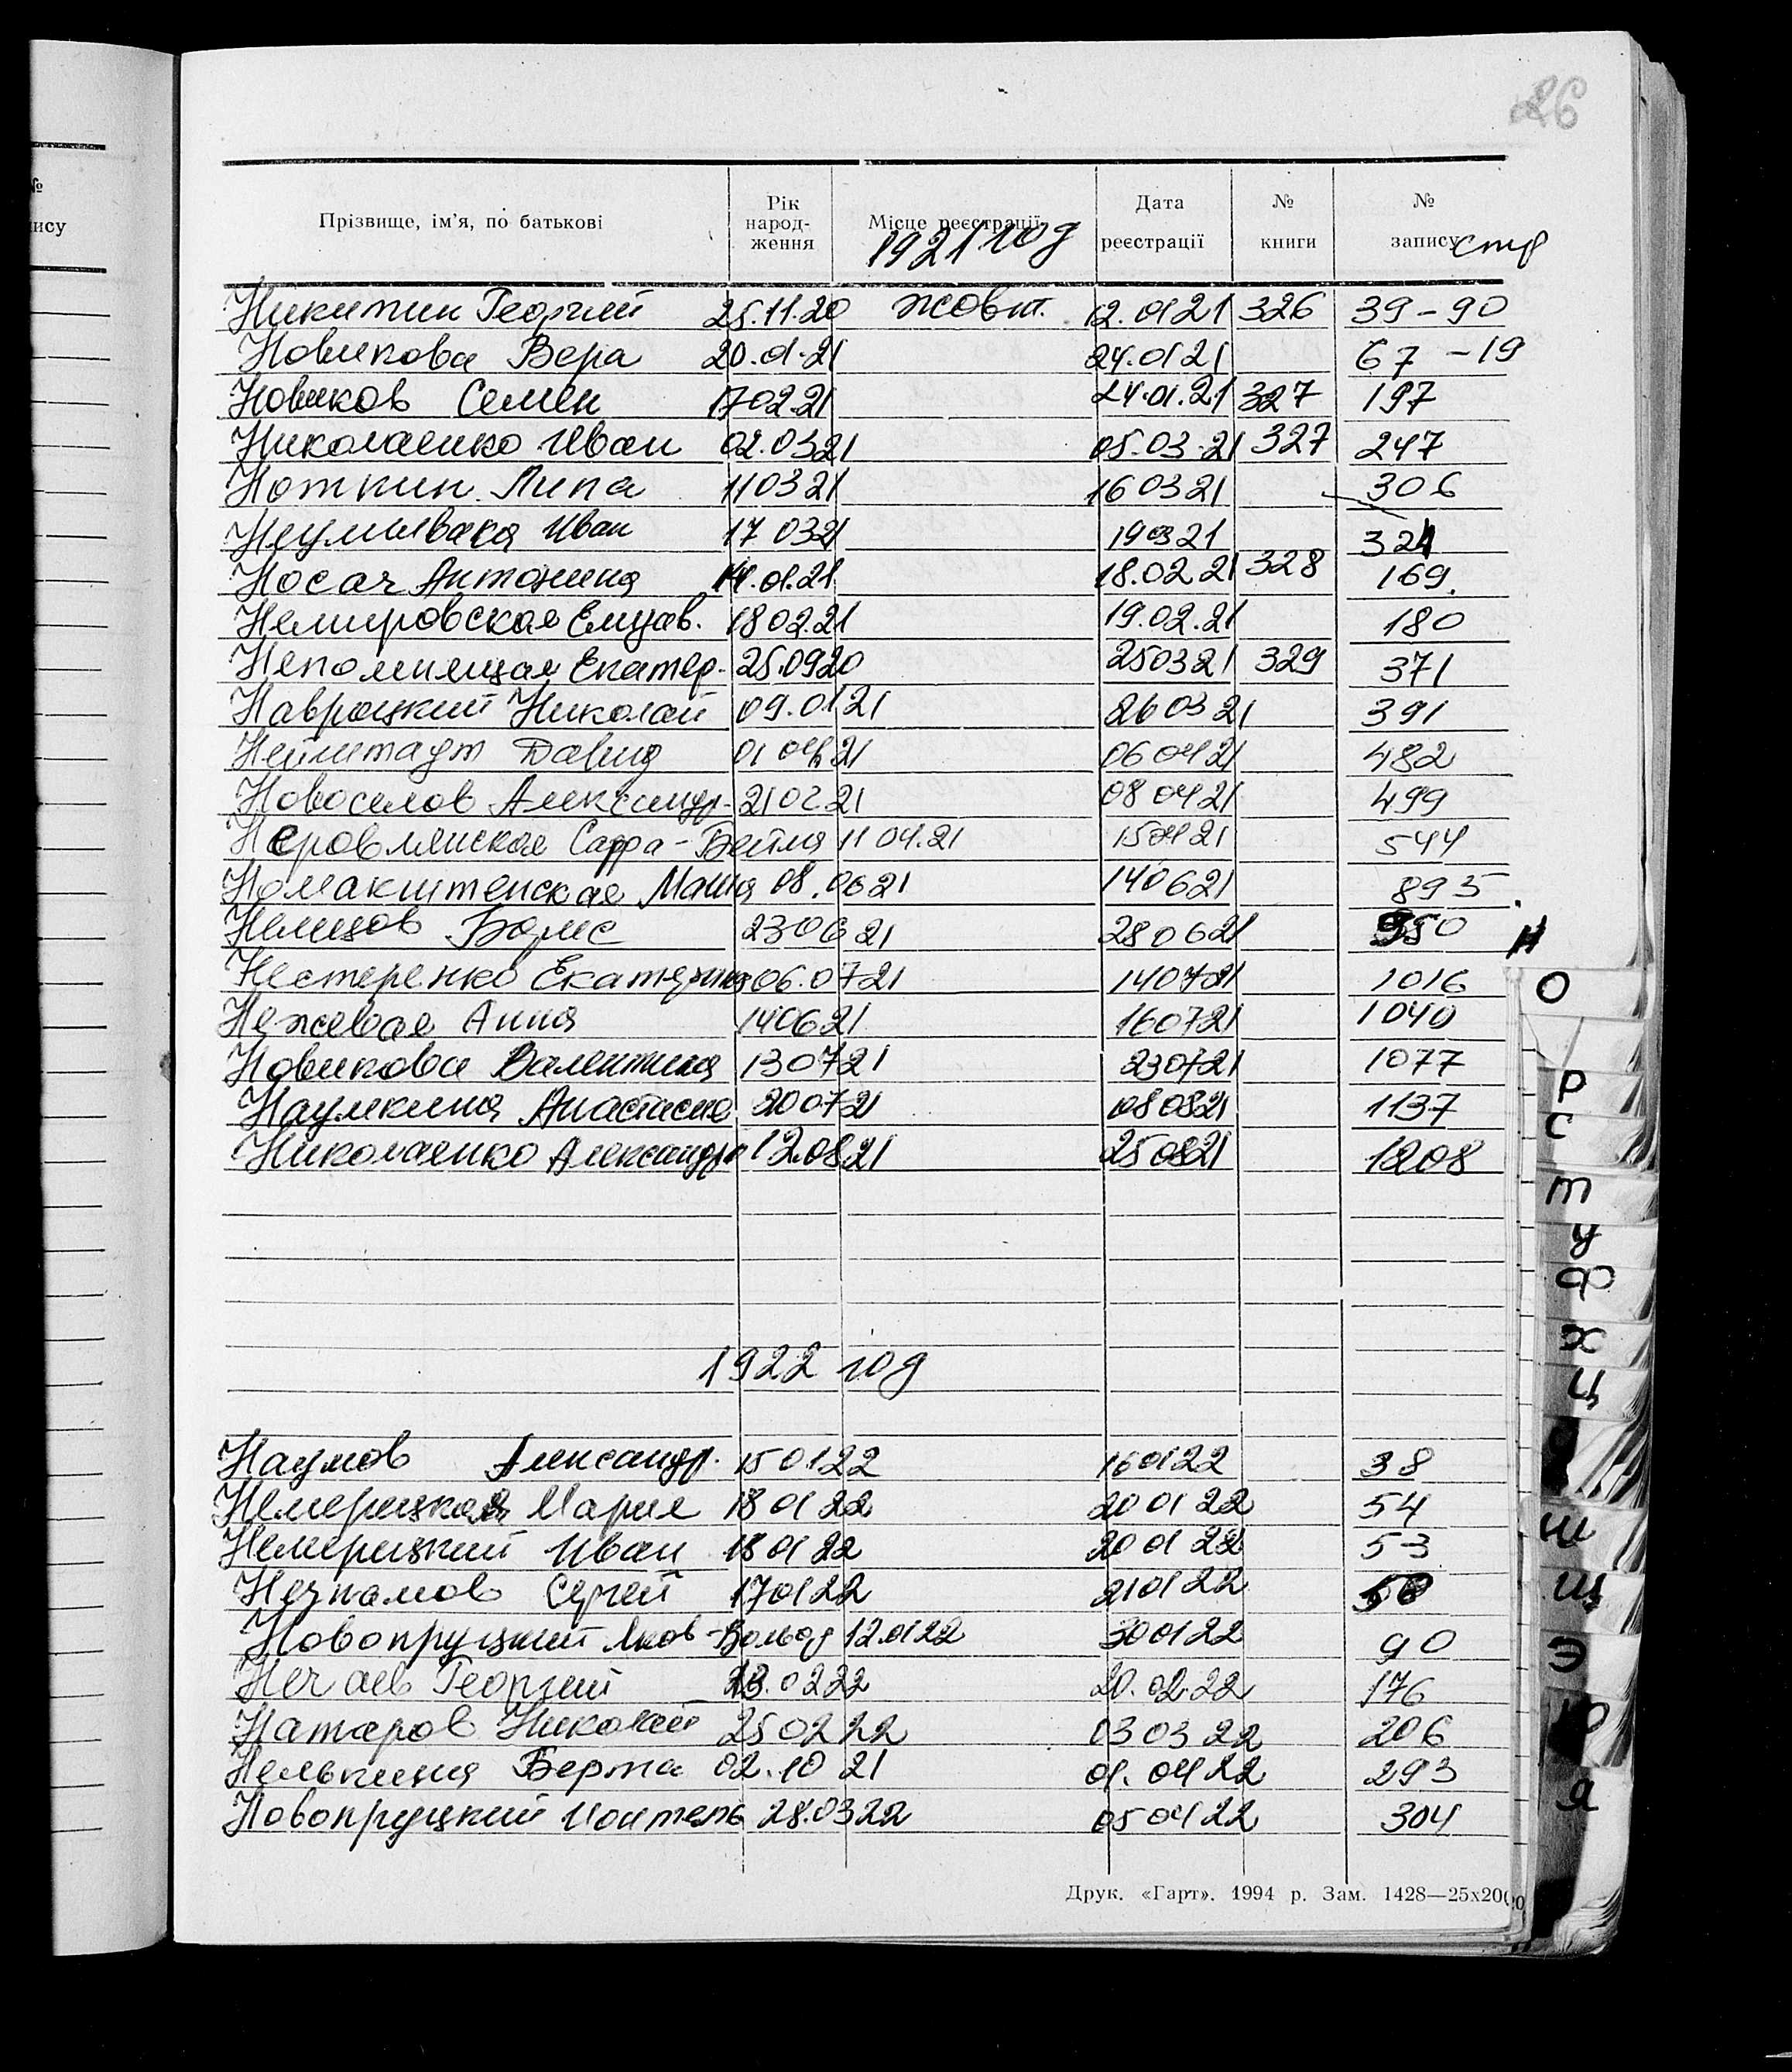 26
№
ису
Прізвище, ім'я, по батькові
Рік народ-ження
Місце реєстрації
Дата реєстрації
№ книги
№ запису
стр
1921 год
Никитин Георгий 25.11.20 жовт. 12.0121 326 39-90
Новикова Вера 20.01.21 24.0121 67-19
Новиков Семен 1702.21 24.01.21 327 197
Николаенко Иван 02.0321 05.03.21 327 247
Ноткин Липа 110321 160321 306
Неумывака Иван 17 0321 190321 324
Носач Антонина 14.01.21 18.02 21 328 169.
Немировская Елизав. 1802.21 19.02.21 180
Непомнящая Екатер. 25.0920 250321 329 371
Навроцкий Николай 09.0121 260321 391
Нейштадт Давид 01 0421 060421 482
Новоселов Александр. 2102.21 080421 499
Неровлянская Сарра-Бейля 11 04.21 150421 544
Номакштенская Маша 08.0621 140621 895
Немцов Борис 230621 280621 950
Нестеренко Екатерина 06.0721 140721 1016
Нежевая Анна 140621 160721 1040
Новикова Валентина 130721 230721 1077
Наумкина Анастасия 200721 080821 1137
Николаенко Александр 12.0821 250821 1208
1922 год
Наумов Александр. 150122 160122 38
Немерицкая Мария 180122 200122 54
Немерицкий Иван 180122 200122 53
Сергей 170122 210122
Новопруцкий Яков-Вольф 12.0122 300122 90
Нечаев Георгий 0222 20.02.22 176
Натаров Николай 250222 030322 206
Нелькина Берта 02.10 21 01.0422 293
Новопруцкий 28.0322 050422 304
Друк. «Гарт». 1994 р. Зам. 1428—25х200
Н
О
Р
С
Т
У
Ф
Х
Ц
Ш
Щ
Э
Ю
Я